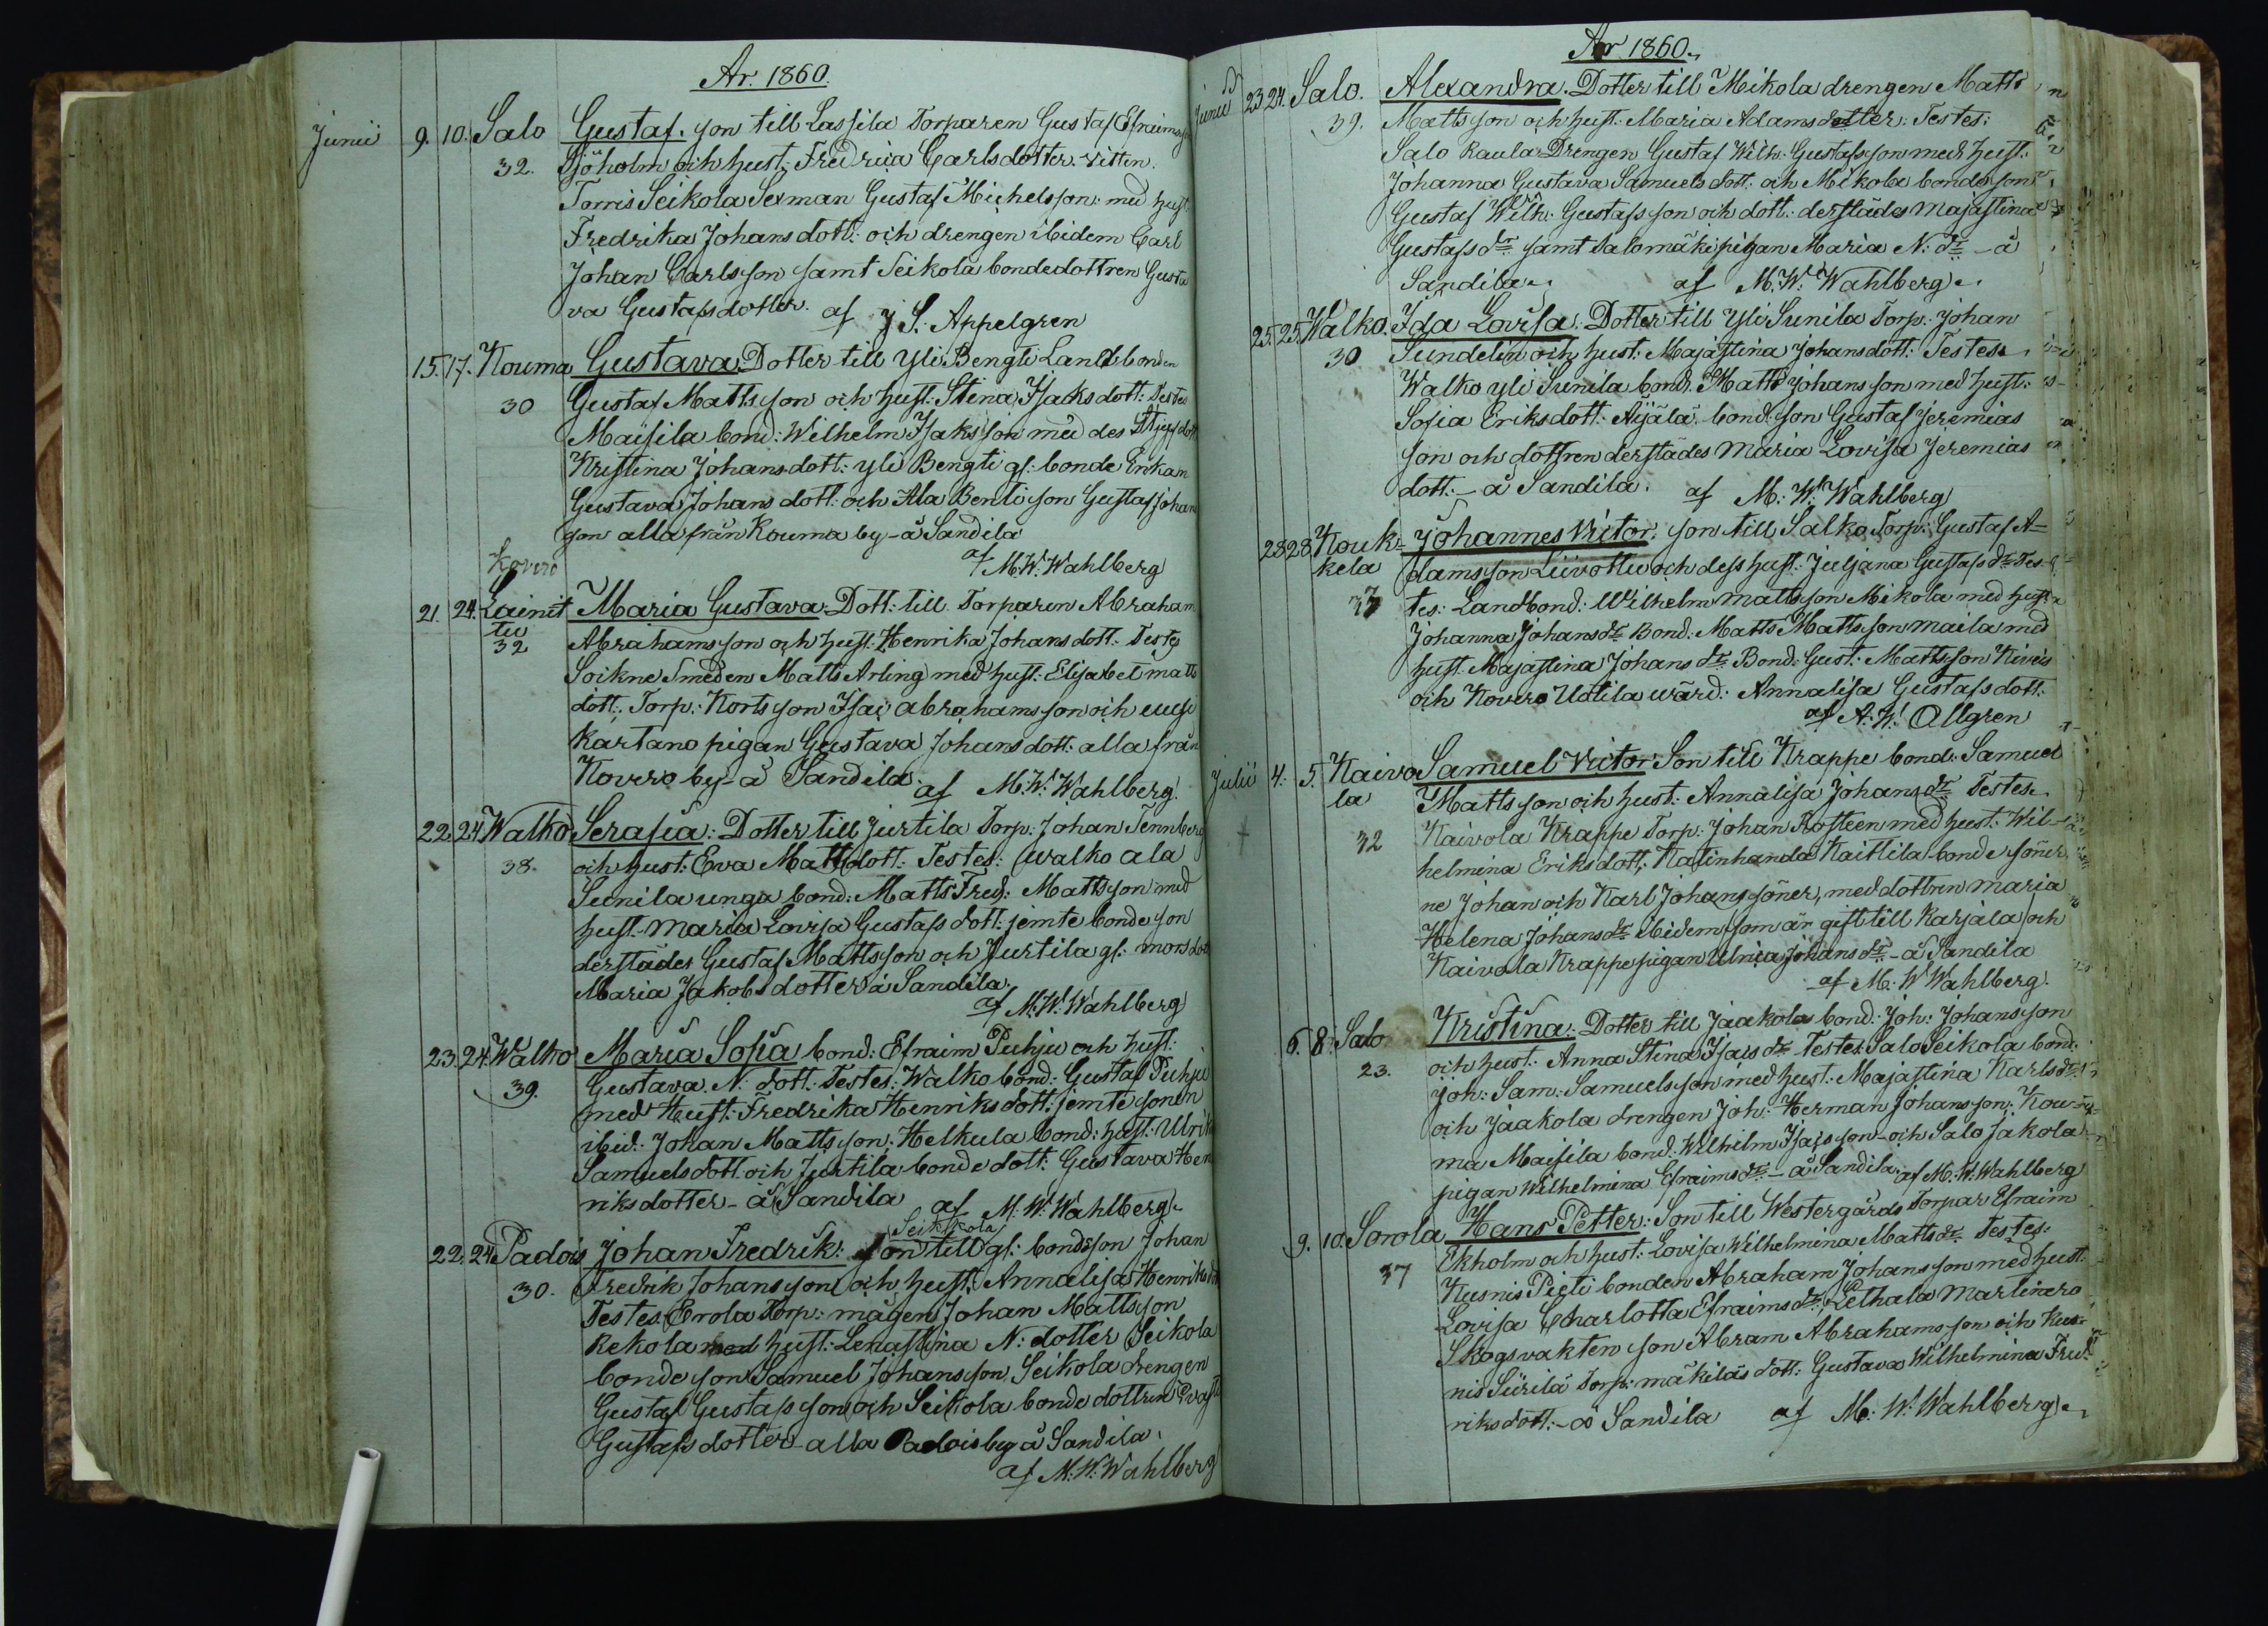 Ar. 1860.
Junii 9. 10. Salo Gustaf. son till Lassila Torparen Gustaf Efraimsson
32. Sjöholm och hust: Fredrica Carlsdotter. vitten:
Torris Seikola Sexman Gustaf Michelsson med hust
Fredrika Johansdott: och drengen ibidem Carl
Johan Carlsson samt Seikola bondedottren Gusta
va Gustafsdotter. af J. S. Appelgren
15. 17. Kouma Gustava Dotter till Yli Bengti Landbonden
30 Gustaf Mattsson och hust: Stina Isaksdott: Testes
Maisila bond: Wilhelm Isaksson med des
Kristina Johansdott: yli Bengti gl: bonde Enkan
Gustava Johansdott: och Ala Benti son Gustaf Johan
son alla från Kouma by - å Sandila
af M: W: Wahlberg
Kovero
21. 24. Lainit Maria Gustava: Dott: till Torparen Abraham
tu Abrahamsson och hust: Henrika Johansdott: Testes
32 Soikne Smeden Matts Arling med hust: Elisabet Matts
dott: Torp: Korts son Isac Abrahamsson och uusi
Kartano pigan Gustava Johansdott: alla från
Kovero by - å Sandila. af M: W: Wahlberg.
22. 24. Walko Serafia: Dotter till Jurtila Torp: Johan Tennberg
38. och hust: Eva Mattsdott: Testes: Walko ala
Sunila unga bond: Matts Fred: Mattsson med
hust: Maria Lovisa Gustafsdott: jemte bonde son
derstädes Gustaf Mattsson och Jurtila gl: mors dott
Maria Jakobsdotter å Sandila.
af M: W: Wahlberg
23. 24. Walko Maria Sofia bond: Efraim Puhju och hust:
39. Gustava N: dott: Testes: Walko bond: Gustaf Puhju
med Hust: Fredrika Henriksdott: jemte sonen
ibid: Johan Mattsson: Helkula bond: hust: Ulrika
Samuelsdott: och Jurtila bonde dott: Gustava Hen
riksdotter - å Sandila af M: W: Wahlberg.
Seikkola
22. 24 Padois Johan Fredrik: son till gl: bondsson Johan
30. Fredrik Johansson och hust: Annalisa Henriksdott
Testes: Erola Torp: mågen Johan Mattsson
Rekola med hust: Lenastina N: dotter Seikola
bonde son Samuel Johansson, Seikola drengen
Gustaf Gustafsson och Seikola bonde dottren Evast
Gustafsdotter - alla Padois by å Sandila.
af M: W: Wahlberg
Ar 1860.
Junii 23 24. Salo. Alexandra. Dotter till Mikola drengen Matts
39. Mattsson och hust: Maria Adamsdotter: Testes:
Salo Kaula Drengen Gustaf Wilh: Gustafsson med hust:
Johanna Gustava Samuelsdott: och Mikola bonde son
Gustaf Wilh: Gustafsson och dott: derstädes Majastina
Gustafsdr samt Salomäki pigan Maria N: dr - å
Sandila. af M: W: Wahlberg.
25. 25. Walko. Ida Lovisa. Dotter till Yli Sunila Torp: Johan
30 Sundelin och hust: Majastina Johansdott: Testes
Walko yli Sunila bond: Matts Johansson med hust:
Sofia Eriksdott: Äijälä bond: son Gustaf Jeremias
son och dottren derstädes Maria Lovisa Jeremias
dott: - å Sandila. af M: W: Wahlberg
28 28 Kouk- Johannes Victor. son till Salko Torp: Gustaf A=
kela damsson Liivottu och dess hust: Juljana Gustafsdr Tes-
37 tes: Landbond: Wilhelm Mattsson Mikola med hust
Johanna Johansdr Bond: Matts Mattsson Maila med
hust: Majastina Johansdr Bond: Gust: Mattsson Niveis
och Kovero Uotila wärd: Annalisa Gustafsdott:
af A: W: Allgren
Julii 4. 5. Kaivo Samuel Victor Son till Krappe bond: Samuel
la Mattsson och hust: Annalisa Johansdr Testes.
32 Kaivola Krappe Torp: Johan Rosteen med hust: Wil-
helmina Eriksdott: Katinhanda Kaitila bonde söner
ne Johan och Karl Johanssöner, med dottren Maria
Helena Johansdr ibidem som är gift till Karjala och
Kaivola Krappe pigan Ulrica Johansdr - å Sandila
af M: W: Wahlberg.
6. 8. Salo Kristina: Dotter till Jaakola bond: Joh: Johansson
23. och hust: Anna Stina Isacsdr Testes Salo Seikola bond:
Joh: Sam: Samuelsson med hust: Majastina Karlsdr
och Jaakola drengen Joh: Herman Johansson: Kou-
ma Maisila bond: Wilhelm Isacsson - och Salo Jakola
pigan Wilhelmina Efraimsdr - å Sandila. af M: W: Wahlberg
9. 10. Sorola Hans Petter: Son till Westergårds Torpar Efraim
37 Ekholm och hust: Lovisa Wilhelmina Mattsdr Testes:
Kusnis Pieti bonden Abraham Johansson med hust:
Lovisa Charlotta Efraimsdr, Lethala Martinero
Skogsvakten son Abram Abrahamsson och Kus-
nis Siirilä Torp: mäkiläs dott: Gustava Wilhelmina Fred:
riksdott: - å Sandila af M: W: Wahlberg.